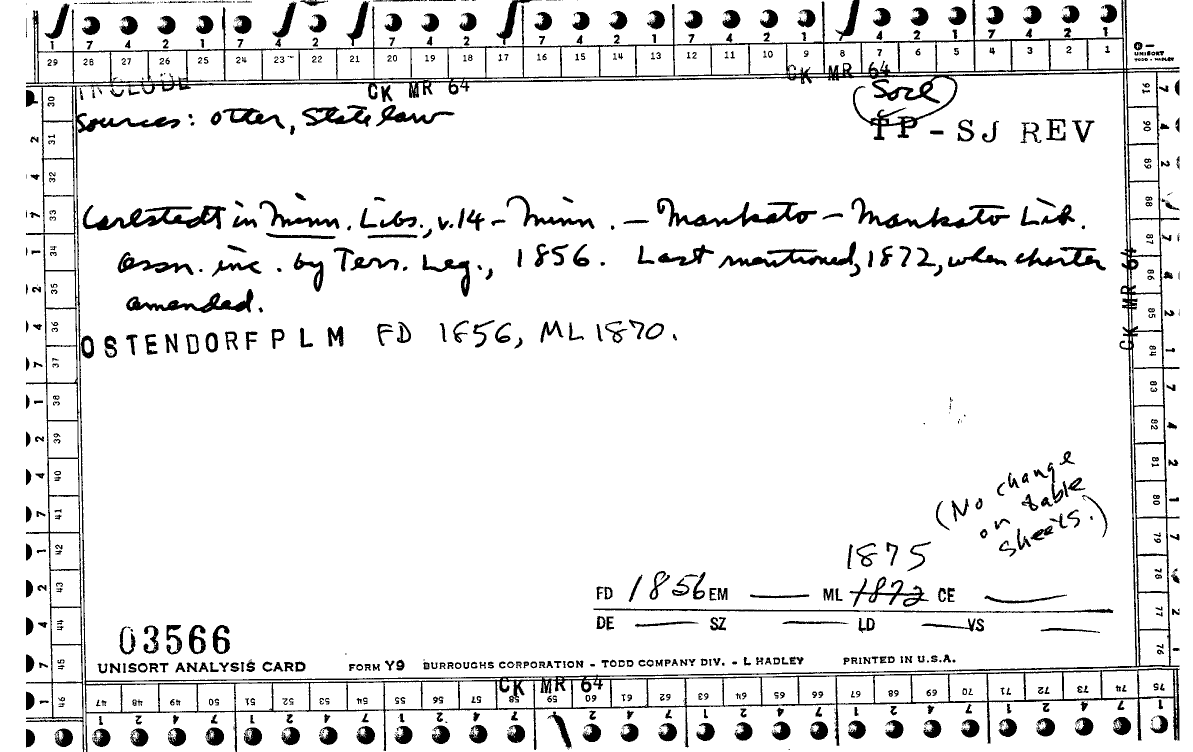 1 7 4 2 1 7 4 2 1 7 4 2 1 7 4 2 1 7 4 2 1 7 4 2 1 7 4 2 1
29 28 27 26 25 24 23 22 21 20 19 18 17 16 15 14 13 12 11 10 9 8 7 6 5 4 3 2 1
UNISORT
TODD - HADLEY
INCLUDE
CK MR 64
CK MR 64
Sources: Otter, State law
Socl
TP - SJ REV
Carlstedt in Minn. Libs., v.14 - Minn. - Mankato - Mankato Lib.
assn. inc. by Terr. Leg., 1856. Last mentioned, 1872, when charter
amended.
OSTENDORF PLM FD 1856, ML 1870.
CK MR 64
(No change
on table
sheets.)
1875
FD 1856 EM ML 1872 CE
DE SZ LD VS
03566
UNISORT ANALYSIS CARD FORM Y9 BURROUGHS CORPORATION - TODD COMPANY DIV. - L HADLEY PRINTED IN U.S.A.
CK MR 64
30 31 32 33 34 35 36 37 38 39 40 41 42 43 44 45 46
91 90 89 88 87 86 85 84 83 82 81 80 79 78 77 76
47 48 49 50 51 52 53 54 55 56 57 58 59 60 61 62 63 64 65 66 67 68 69 70 71 72 73 74 75